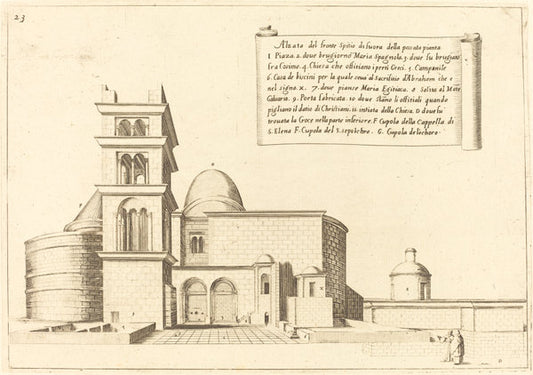 23
Alzata del fronte Spitio di fuora della passata pianta
1 Piaza. 2. doue brugiorno Maria Spagnola. 3. doue fu brugiato
fra Cosimo. 4. Chiesa che offitiano i preti Greci. 5. Campanile
6. Casa de biscini per la quale si ua al Sacrifitio d'Abraham che e
nel signo. X. 7. doue pianse Maria Egitiaca. 8 Salita al Monte
Caluario. 9. Porta fabricata. 10 doue stano li offitiali quando
pigliano il datio di Christiani. 11. intrata della Chiesa. D doue fu
trouata la Croce nella parte inferiore. F Cupola della Cappella di
S. Elena F. Cupola del S. sepulchro. G. Cupola de lo choro.
D